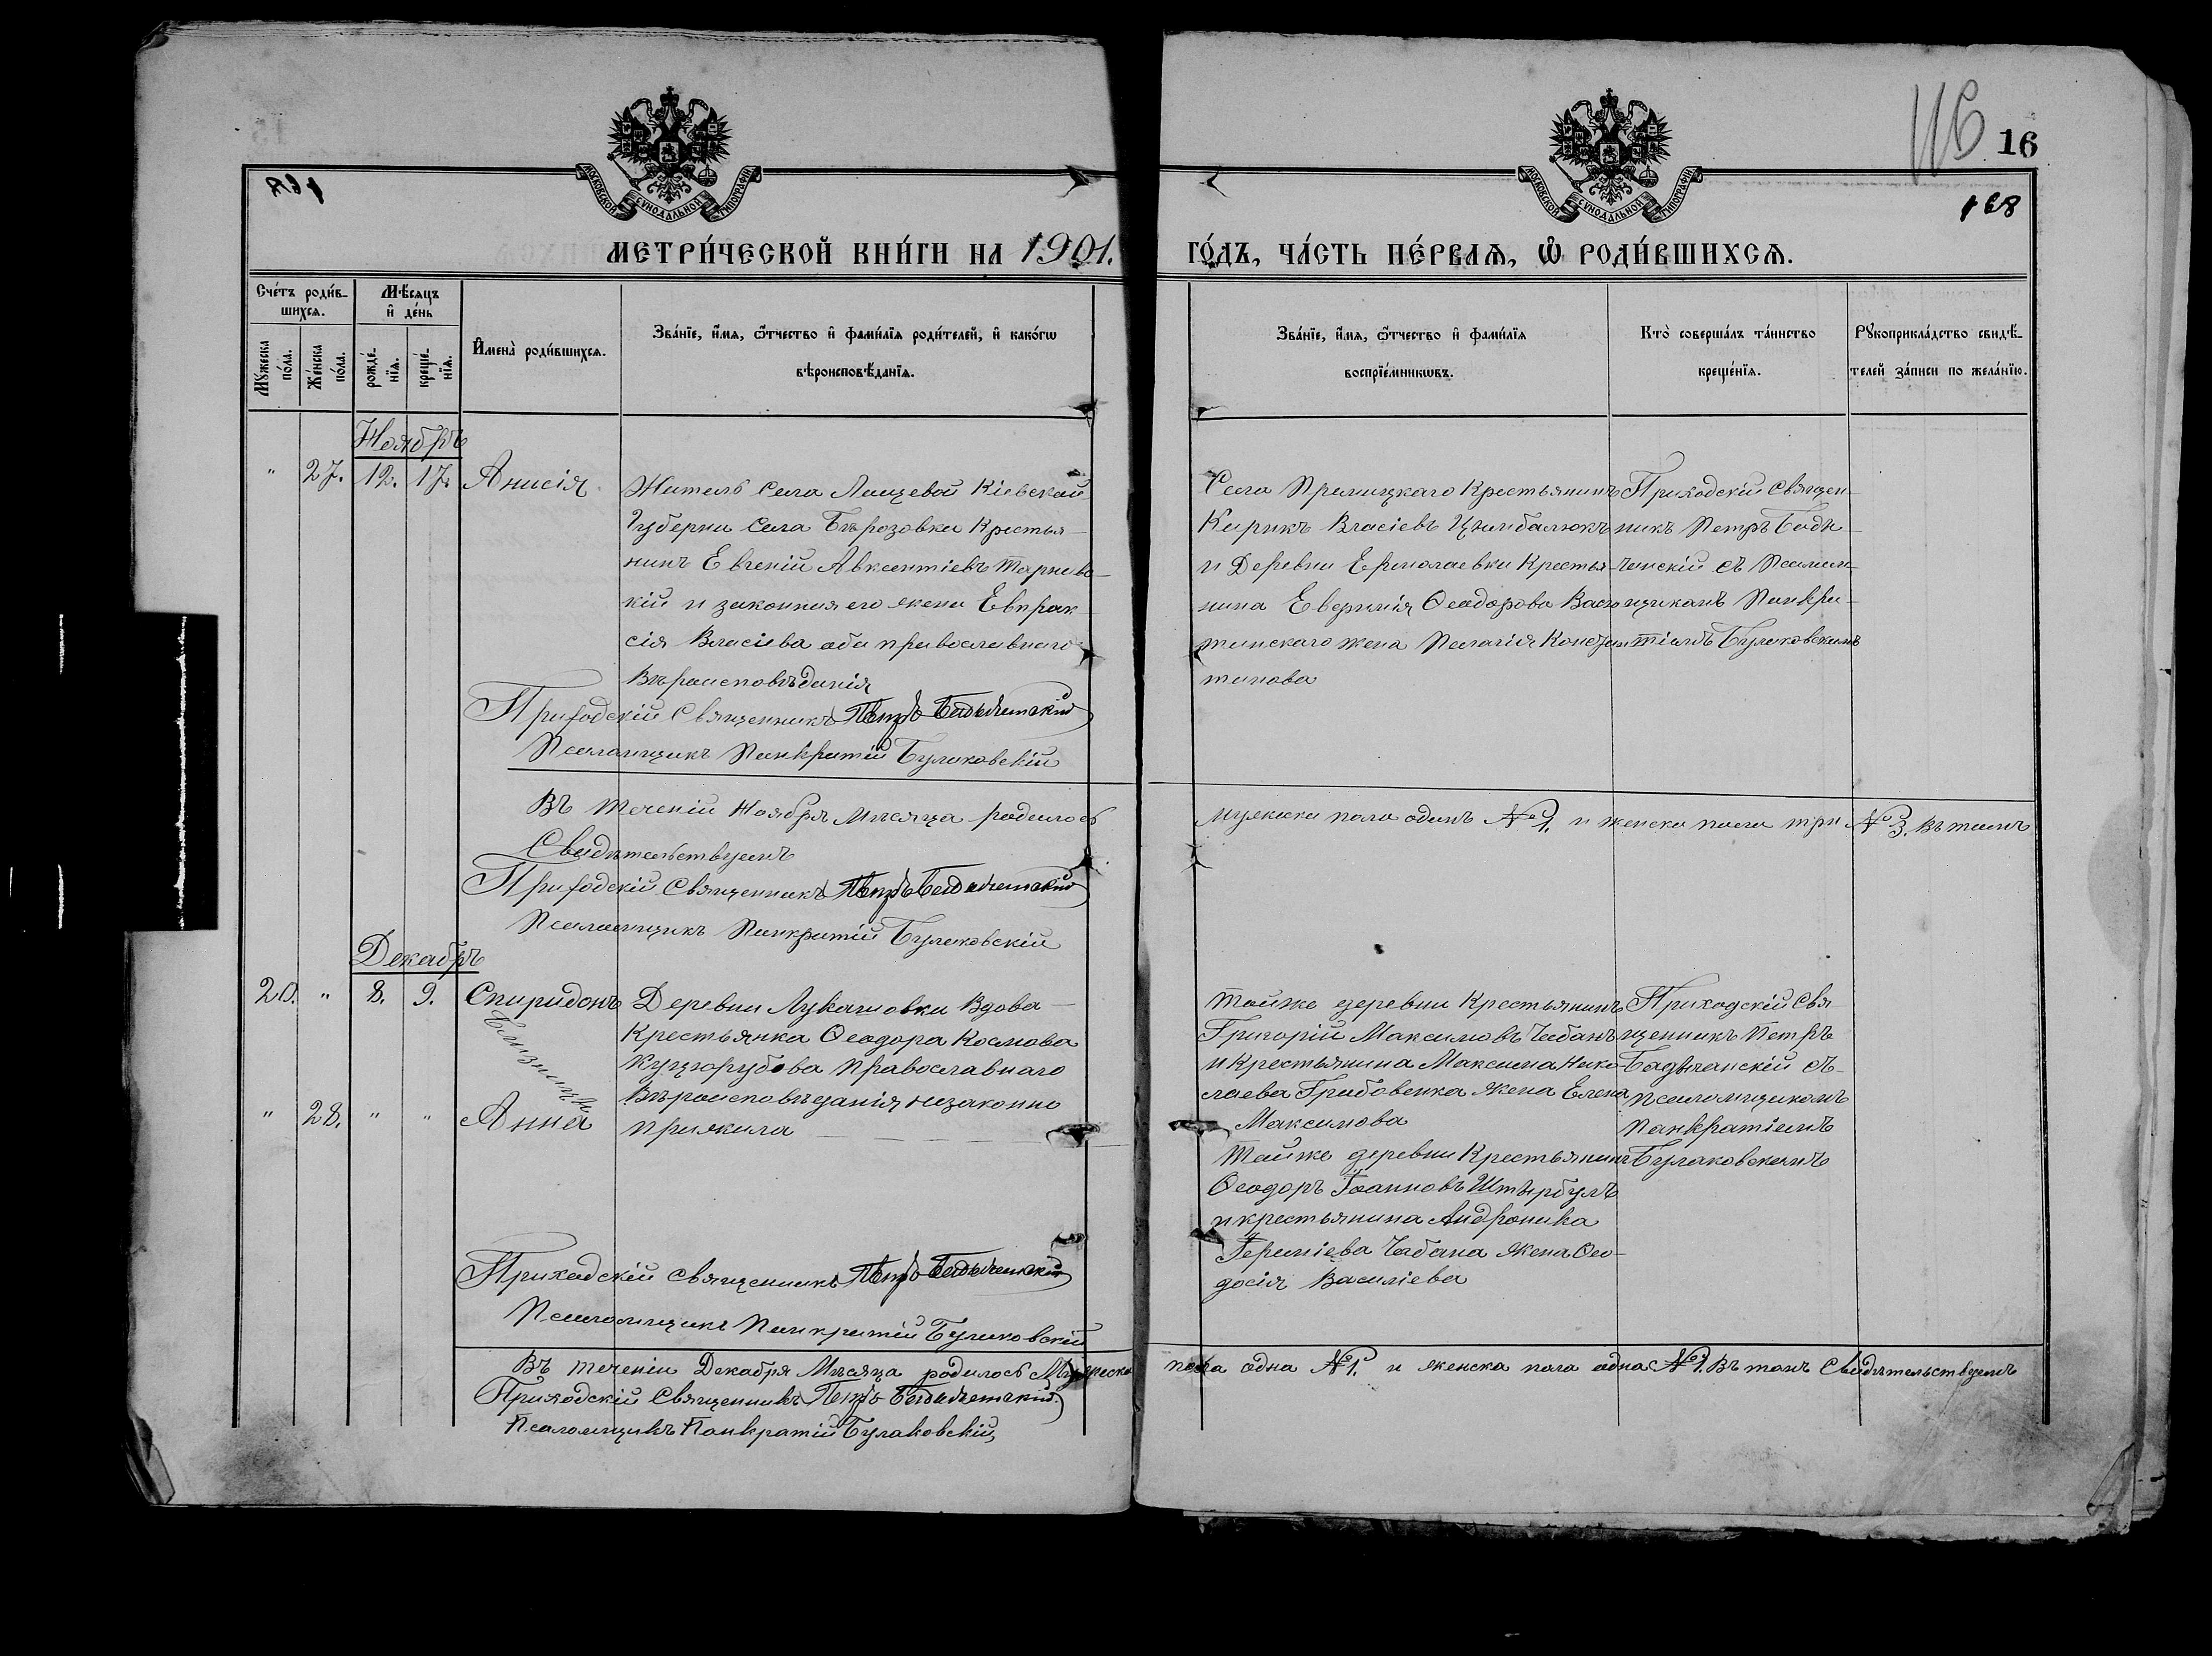 116
16
168
МОСКОВСКОЙ СѴНОДАЛЬНОЙ ТИПОГРАФІИ
МОСКОВСКОЙ СѴНОДАЛЬНОЙ ТИПОГРАФІИ
МЕТРИ́ЧЕСКОЙ КНИ́ГИ НА 1901.
ГО́ДЪ, ЧА́СТЬ ПЕ́РВАѦ, Ѽ РОДИ́ВШИХСѦ.
Сче́тъ роди́в-
шихсѧ.
Мꙋ́жеска по́ла.
Же́нска по́ла.
Мѣ́сѧцъ
и҆ де́нь
рожде́-нїѧ.
креще́-нїѧ.
И҆мена̀ роди́вшихсѧ.
Зва́нїе, и҆́мѧ, ѻ҆́тчество и҆ фами́лїѧ роди́телей, и҆ како́гѡ
вѣроисповѣ́данїѧ.
Зва́нїе, и҆́мѧ, ѻ҆́тчество и҆ фами́лїѧ
воспрїе́мникѡвъ.
Кто̀ соверша́лъ та́инство
креще́нїѧ.
Рꙋкоприкла́дство свидѣ́-
телей за́писи по жела́нїю.
Ноябрь
" 27. 12. 17. Анисія
Житель села Лащевой Кіевской
Губерни села Бѣрозовки Крестья-
нинъ Евгеній Авксентіевъ Тарнавс-
кій и законная его жена Евпрак-
сія Власіева оба православнаго
Вѣроисповѣданія
Села Кресть­янинъ
Кирикъ Власіевъ Цымбалюкъ
и Деревни Ермолаевки Крестья-
нина Феодорова
жена Пелагія Констан-
тинова
Приходскій Священ-
никъ Петръ
съ Псалом-
щикомъ Панкра-
тіемъ Булаковскимъ
Приходскій Священникъ Петръ
Псаломщикъ Панкратій Булаковскій
Въ теченіи Ноября Мѣсяца родилось
мужеска пола одинъ №1. и женска пола три №3. въ томъ
Свидѣтельствуемъ
Приходскій Священникъ Петръ
Псаломщикъ Панкратій Булаковскій
Декабрь
20. " 8. 9. Спиридонъ
Близнецы
" 28. " " Анна
Деревни Лукашовки Вдова
Крестьянка Ѳеодора Космова
Куцорубова Православнаго
Вѣроисповѣданія незаконно
прижила
Тойже деревни Крестьянинъ
Григорій Максимовъ Чабанъ
и Крестьянина Максима Нико-
лаева Грибовенка жена Елена
Максимова
Тойже деревни Крестьянинъ
Ѳеодоръ Іоанновъ Штырбулъ
и крестьянина Андроника
Чабана жена Ѳео-
досія Василіева
Приходскій Свя-
щенникъ Петръ
съ
псаломщикомъ
Панкратіемъ
Булаковскимъ
Приходскій священникъ Петръ
Псаломщикъ Панкратій Булаковскій
Въ теченіи Декабря Мѣсяца родилось Мужеска пола одна №1. и женска пола одна №1. Въ томъ Свидѣтельствуемъ
Приходскій Священникъ Петръ
Псаломщикъ Панкратій Булаковскій